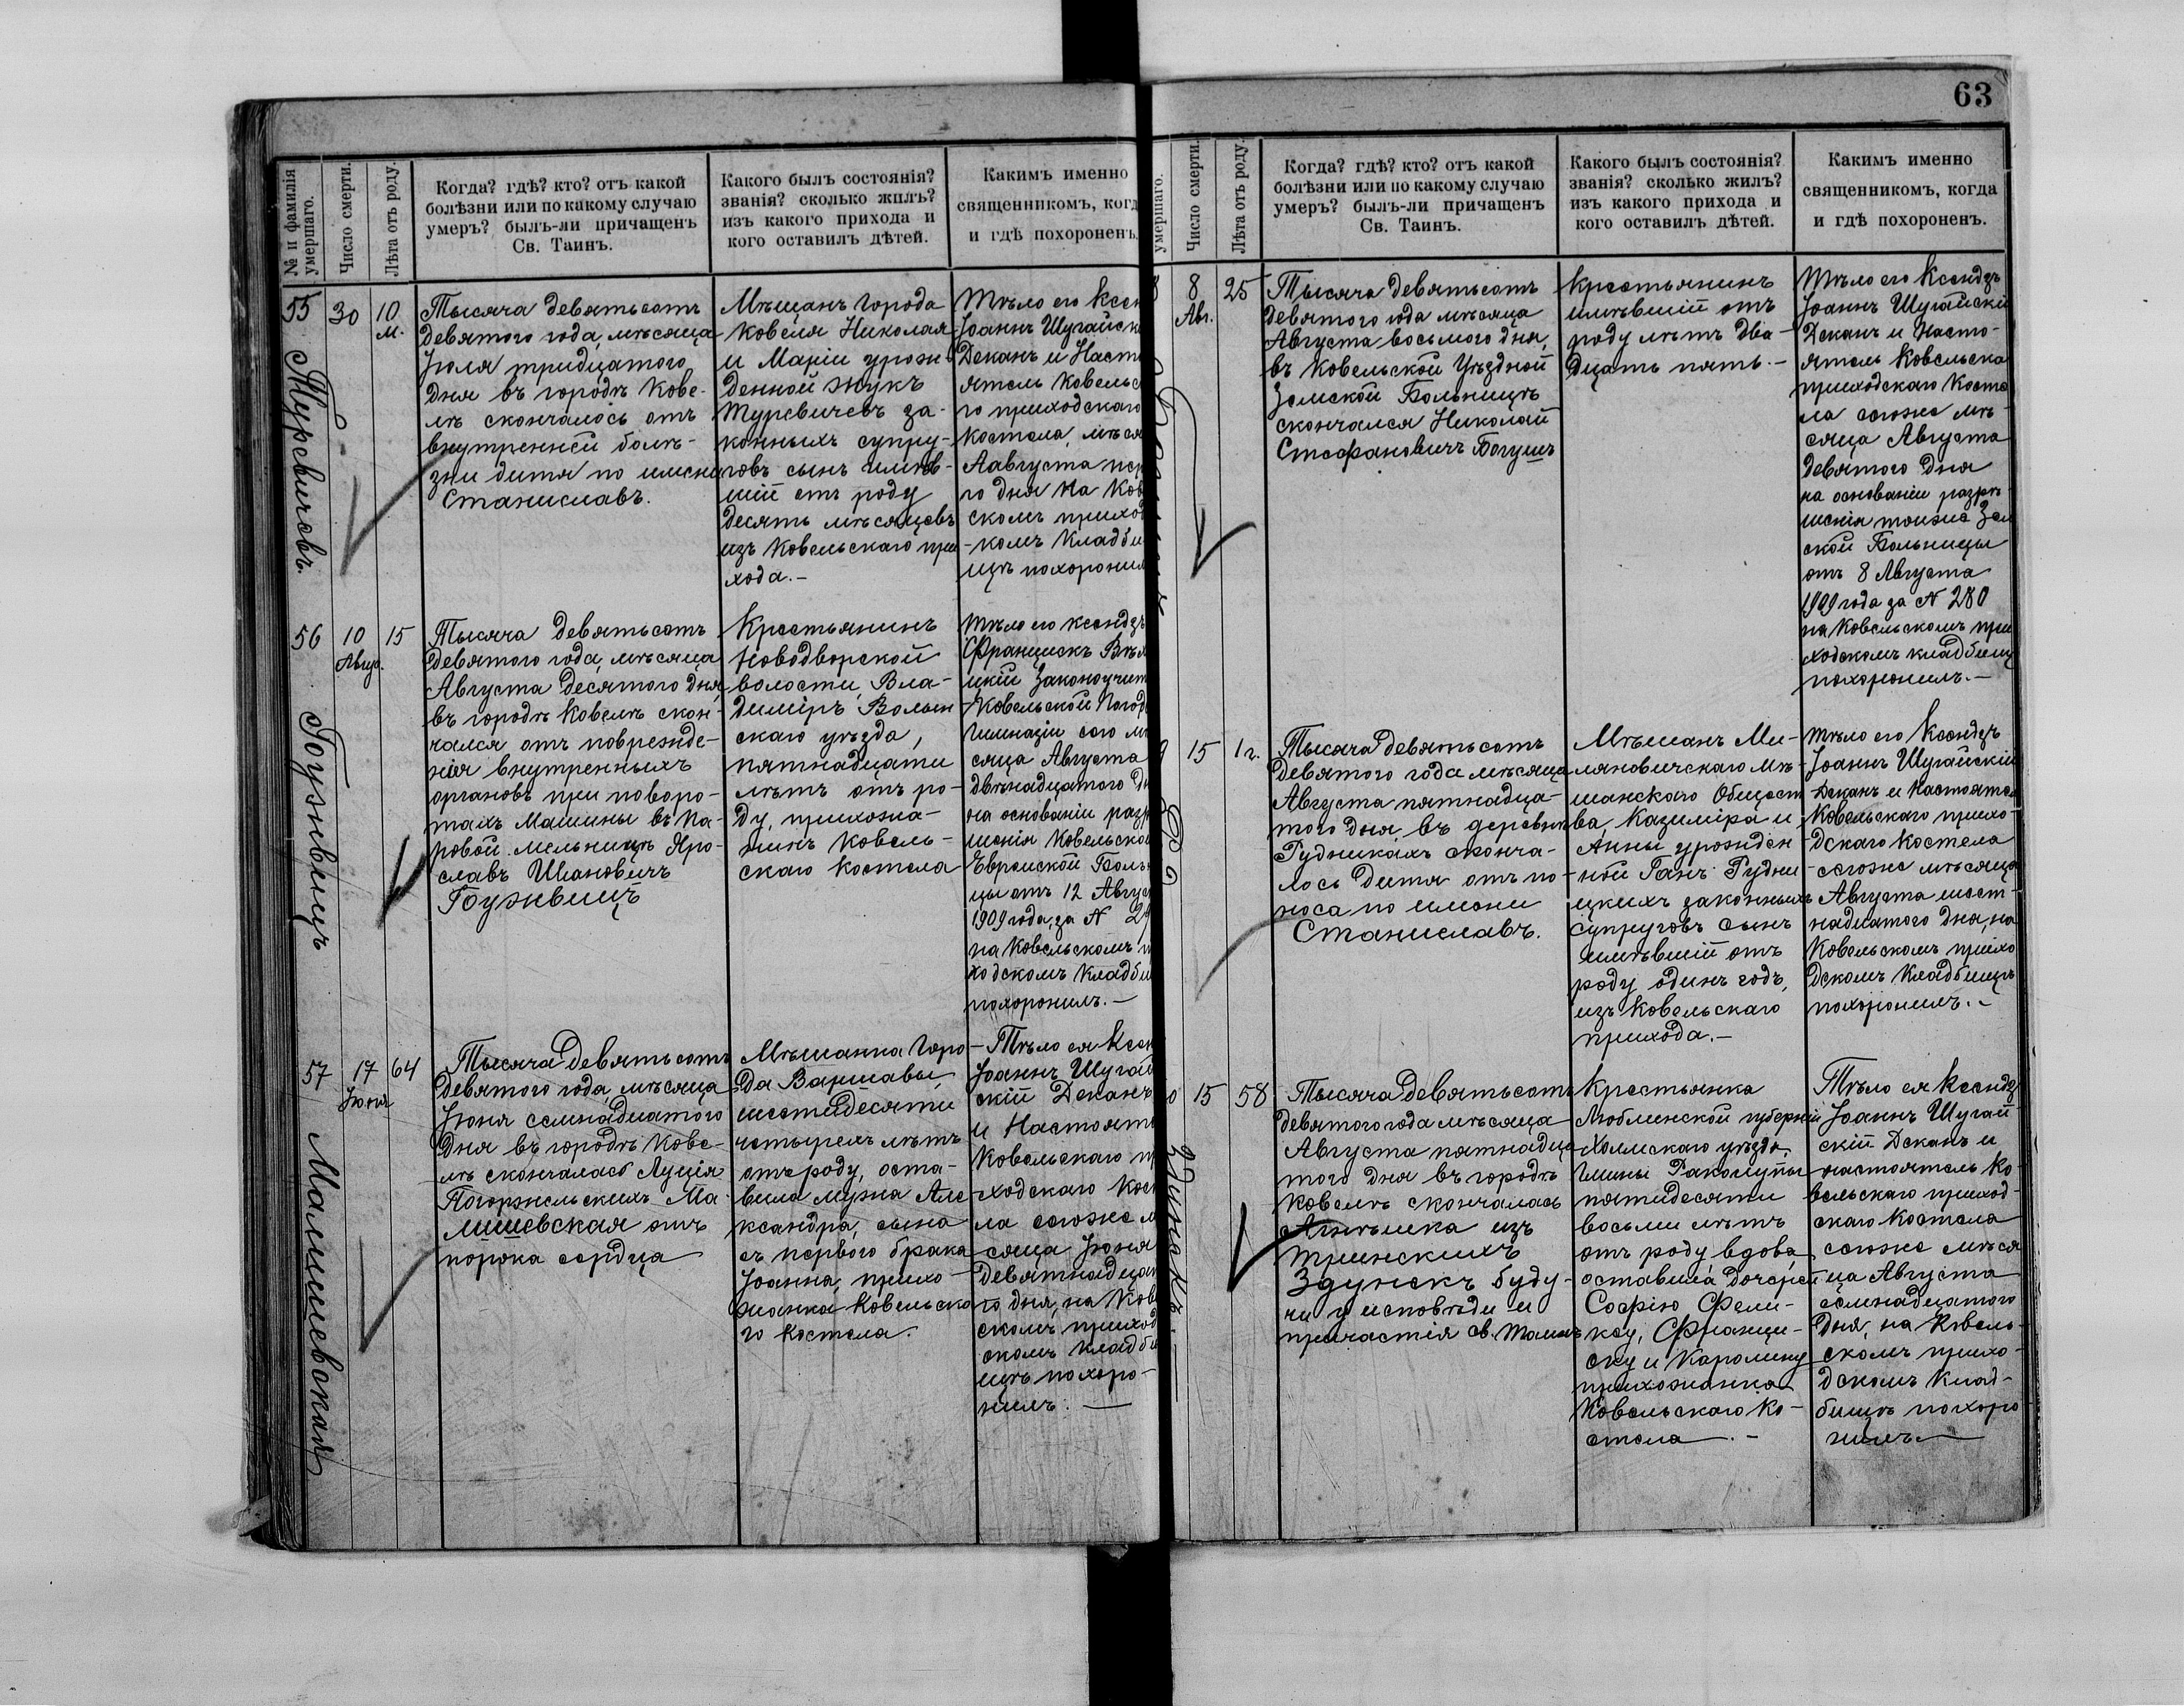 63
№ и фамилія
умершаго.
Число смерти.
Лѣта отъ роду.
Когда? гдѣ? кто? отъ какой
болѣзни или по какому случаю
умеръ? былъ-ли причащенъ
Св. Таинъ.
Какого былъ состоянія?
званія? сколько жилъ?
изъ какого прихода и
кого оставилъ дѣтей.
Какимъ именно
священникомъ, когд
и гдѣ похороненъ.
55
Туревичевъ.
30
10
м.
Тысяча девятьсотъ
девятого года, мѣсяца
Іюля тридцатого
дня въ городѣ Кове-
лѣ скончалось отъ
внутренней болѣ-
зни дитя по имени
Станиславъ.
Мѣщанъ города
Ковеля Николая
и Маріи урож-
денной Жукъ
Туревичевъ за-
конныхъ супру-
говъ сынъ имѣв-
шій отъ роду
десять мѣсяцевъ
изъ Ковельскаго при
хода.-
Тѣло его Ксен
Іоаннъ Шугайск
Деканъ и Наст
ятель Ковельс
го приходскаго
Костела, мѣся
Аавгуста пер
го дня на Ков
скомъ приход
-комъ кладби
щѣ похоронил
56
Гоуживицъ
10
Авгус.
15
Тысяча девятьсотъ
девятого года, мѣсяца
Августа десятого дня
въ городѣ Ковелѣ скон-
чался отъ поврежде-
нія внутренныхъ
органовъ при поворо-
тахъ Машины въ па-
ровой мельницѣ Яро-
славъ Ивановичъ
Гоуживицъ
Крестьянинъ
Новодворской
волости, Вла-
димиръ Волын
скаго уѣзда,
пятнадцати
лѣтъ отъ ро-
ду, прихожа-
нинъ Ковель-
скаго костела
Тѣло его ксендзъ
Францискъ
цкій Законоучит
Ковельской
Гимназіи сего мѣ
сяца Августа
двѣнадцатого дн
на основаніи разр
шенія Ковельской
Еврейской Больн
цы отъ 12 Август
1909 года, за N 2
на Ковельскомъ п
ходскомъ кладби
похоронилъ.-
57
Малишевская
17
Іюня
64
Тысяча девятьсотъ
девятого года, мѣсяца
Іюня семнадцатого
дня въ городѣ Кове-
лѣ скончалась Луція
Погоржельскихъ Ма-
лишевская отъ
порока сердца
Мѣщанка Горо-
да Варшавы
шестидесяти
четырехъ лѣтъ
отъ роду, оста-
вила мужа Але
ксандра, сына
съ первого брака
Іоанна, прихо-
жанка Ковельска
го костела.
Тѣло ея Ксен
Іоаннъ Шугай
скій Деканъ
и Настоят
Ковельскаго п
ходскаго Кос
ла сегоже м
сяца Іюня
девятнадцат
го дня, на Ков
скомъ приход
скомъ кладби
щѣ похоро-
нилъ.
умершаго.
Число смерти.
Лѣта отъ роду.
Когда? гдѣ? кто? отъ какой
болѣзни или по какому случаю
умеръ? былъ-ли причащенъ
Св. Таинъ.
Какого былъ состоянія?
званія? сколько жилъ?
изъ какого прихода и
кого оставилъ дѣтей.
Какимъ именно
священникомъ, когда
и гдѣ похороненъ.
8
8
Авг.
25
Тысяча девятьсотъ
девятого года мѣсяца
Августа восьмого дня,
въ Ковельской Уѣздной
Земской Больницѣ
скончался Николай
Стефановичъ Богушъ
Крестьянинъ
имѣвшій отъ
роду лѣтъ два-
дцать пять.-
Тѣло его Ксендзъ
Іоаннъ Шугайскій
Деканъ и Насто-
ятель Ковельска
приходскаго Косте
ла сегоже мѣ-
сяца Августа
девятого дня
на основаніи разрѣ
шенія тоиже Зем
ской Больницы
отъ 8 Августа
1909 года за N 280
на Ковельскомъ при
ходскомъ кладбищ
похоронилъ.-
9
15
1 г.
Тысяча девятьсотъ
девятого года мѣсяца
Августа пятнадца-
того дня въ деревнѣ
Рудникахъ сконча-
лось дитя отъ по-
носа по имени
Станиславъ.
Мѣщанъ Ми-
ляновичскаго мѣ-
щанскаго Общест
ва, Казиміра и
Анны урожден
ной Ганъ Рудни
цкихъ законныхъ
супруговъ сынъ
имѣвшій отъ
роду одинъ годъ,
изъ Ковельскаго
прихода.-
Тѣло его Ксендзъ
Іоаннъ Шугайскій
Деканъ и Настояте
Ковельскаго прихо-
дскаго Костела
сегоже мѣсяца
Августа шест-
надцатого дня, на
Ковельскомъ прихо
дскомъ Кладбищѣ
похоронилъ.-
0
15
58
Тысяча девятьсотъ
девятого года мѣсяца
Августа пятнадца
того дня въ городѣ
Ковелѣ скончалась
Агнѣшка изъ
Здунскъ буду-
чи у исповѣди и
причастія св. Таинъ
Крестьянка
Люблинской губерніи
Холмскаго уѣзда,
Гмины Раколупы
пятидесяти
восьми лѣтъ
отъ роду вдова,
оставила дочерей
Софію Фели-
ксу, Францис-
ску и Каролину
прихожанка
Ковельскаго Ко-
стела.-
Тѣло ея Ксендз
Іоаннъ Шугай-
скій Деканъ и
настоятель Ко-
вельскаго приход-
скаго Костела
сегоже мѣся
ца Августа
семнадцатого
дня, на Ковель-
скомъ прихо-
дскомъ Клад-
бищѣ похоро
нилъ